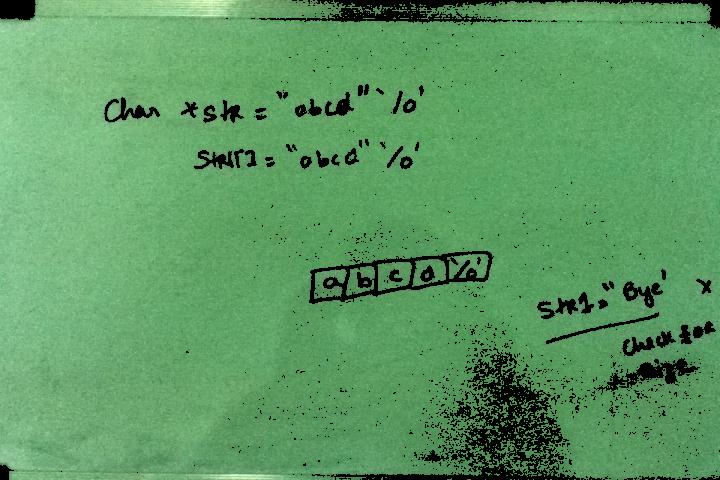 Char *str = "abcd" '/0'
Str[] = "abcd" '/0'
a b c d '/0'
Str1 = "Bye' x
Check for
size